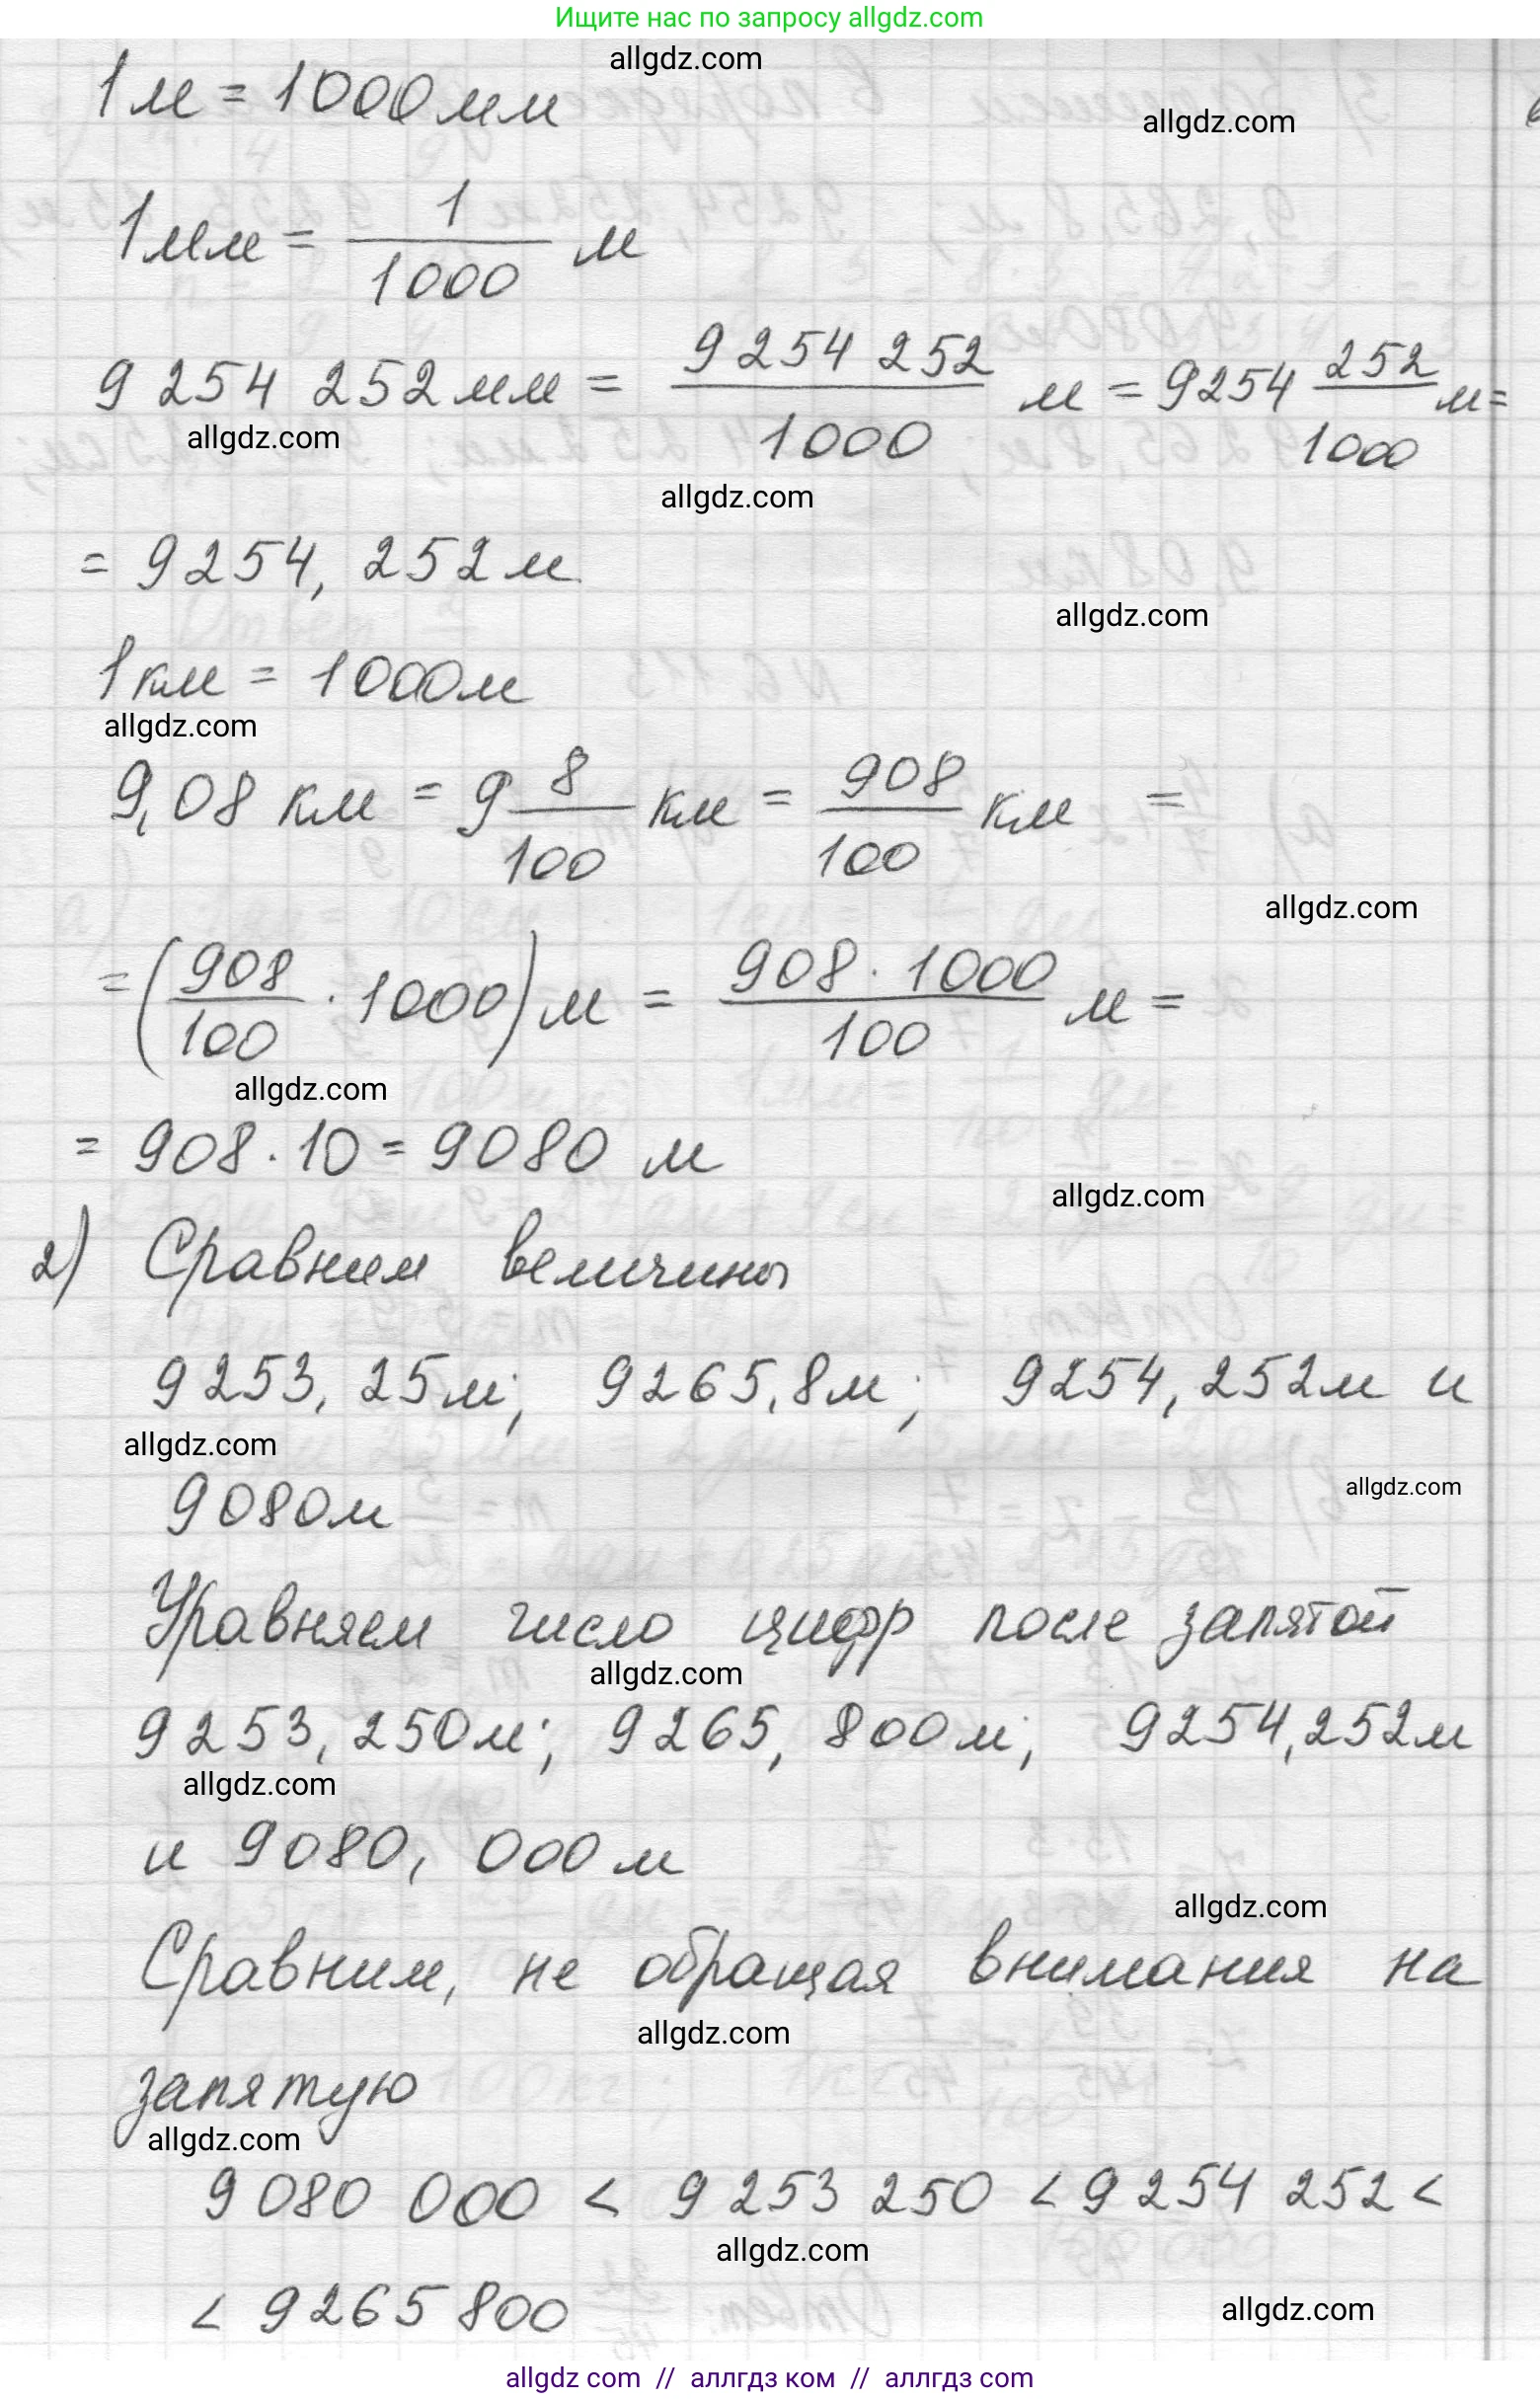 Ищите нас по запросу allgdz.com
allgdz.com
1 м = 1000 мм
allgdz.com
1 мм = 1/1000 м
9 254 252 мм = 9 254 252/1000 м = 9254 252/1000 м =
allgdz.com
allgdz.com
= 9254, 252 м
allgdz.com
1 км = 1000 м
allgdz.com
9,08 км = 9 8/100 км = 908/100 км =
allgdz.com
= (908/100 · 1000) м = 908 · 1000/100 м =
allgdz.com
= 908 · 10 = 9080 м
allgdz.com
2) Сравним величины
9253, 25 м; 9265,8 м; 9254, 252 м и
allgdz.com
9080 м
allgdz.com
Уравняем число цифр после запятой
allgdz.com
9253, 250 м; 9265, 800 м; 9254,252 м
allgdz.com
и 9080, 000 м
allgdz.com
Сравним, не обращая внимания на
allgdz.com
запятую
allgdz.com
9 080 000 < 9 253 250 < 9 254 252 <
allgdz.com
< 9 265 800
allgdz.com
allgdz com // аллгдз ком // аллгдз com